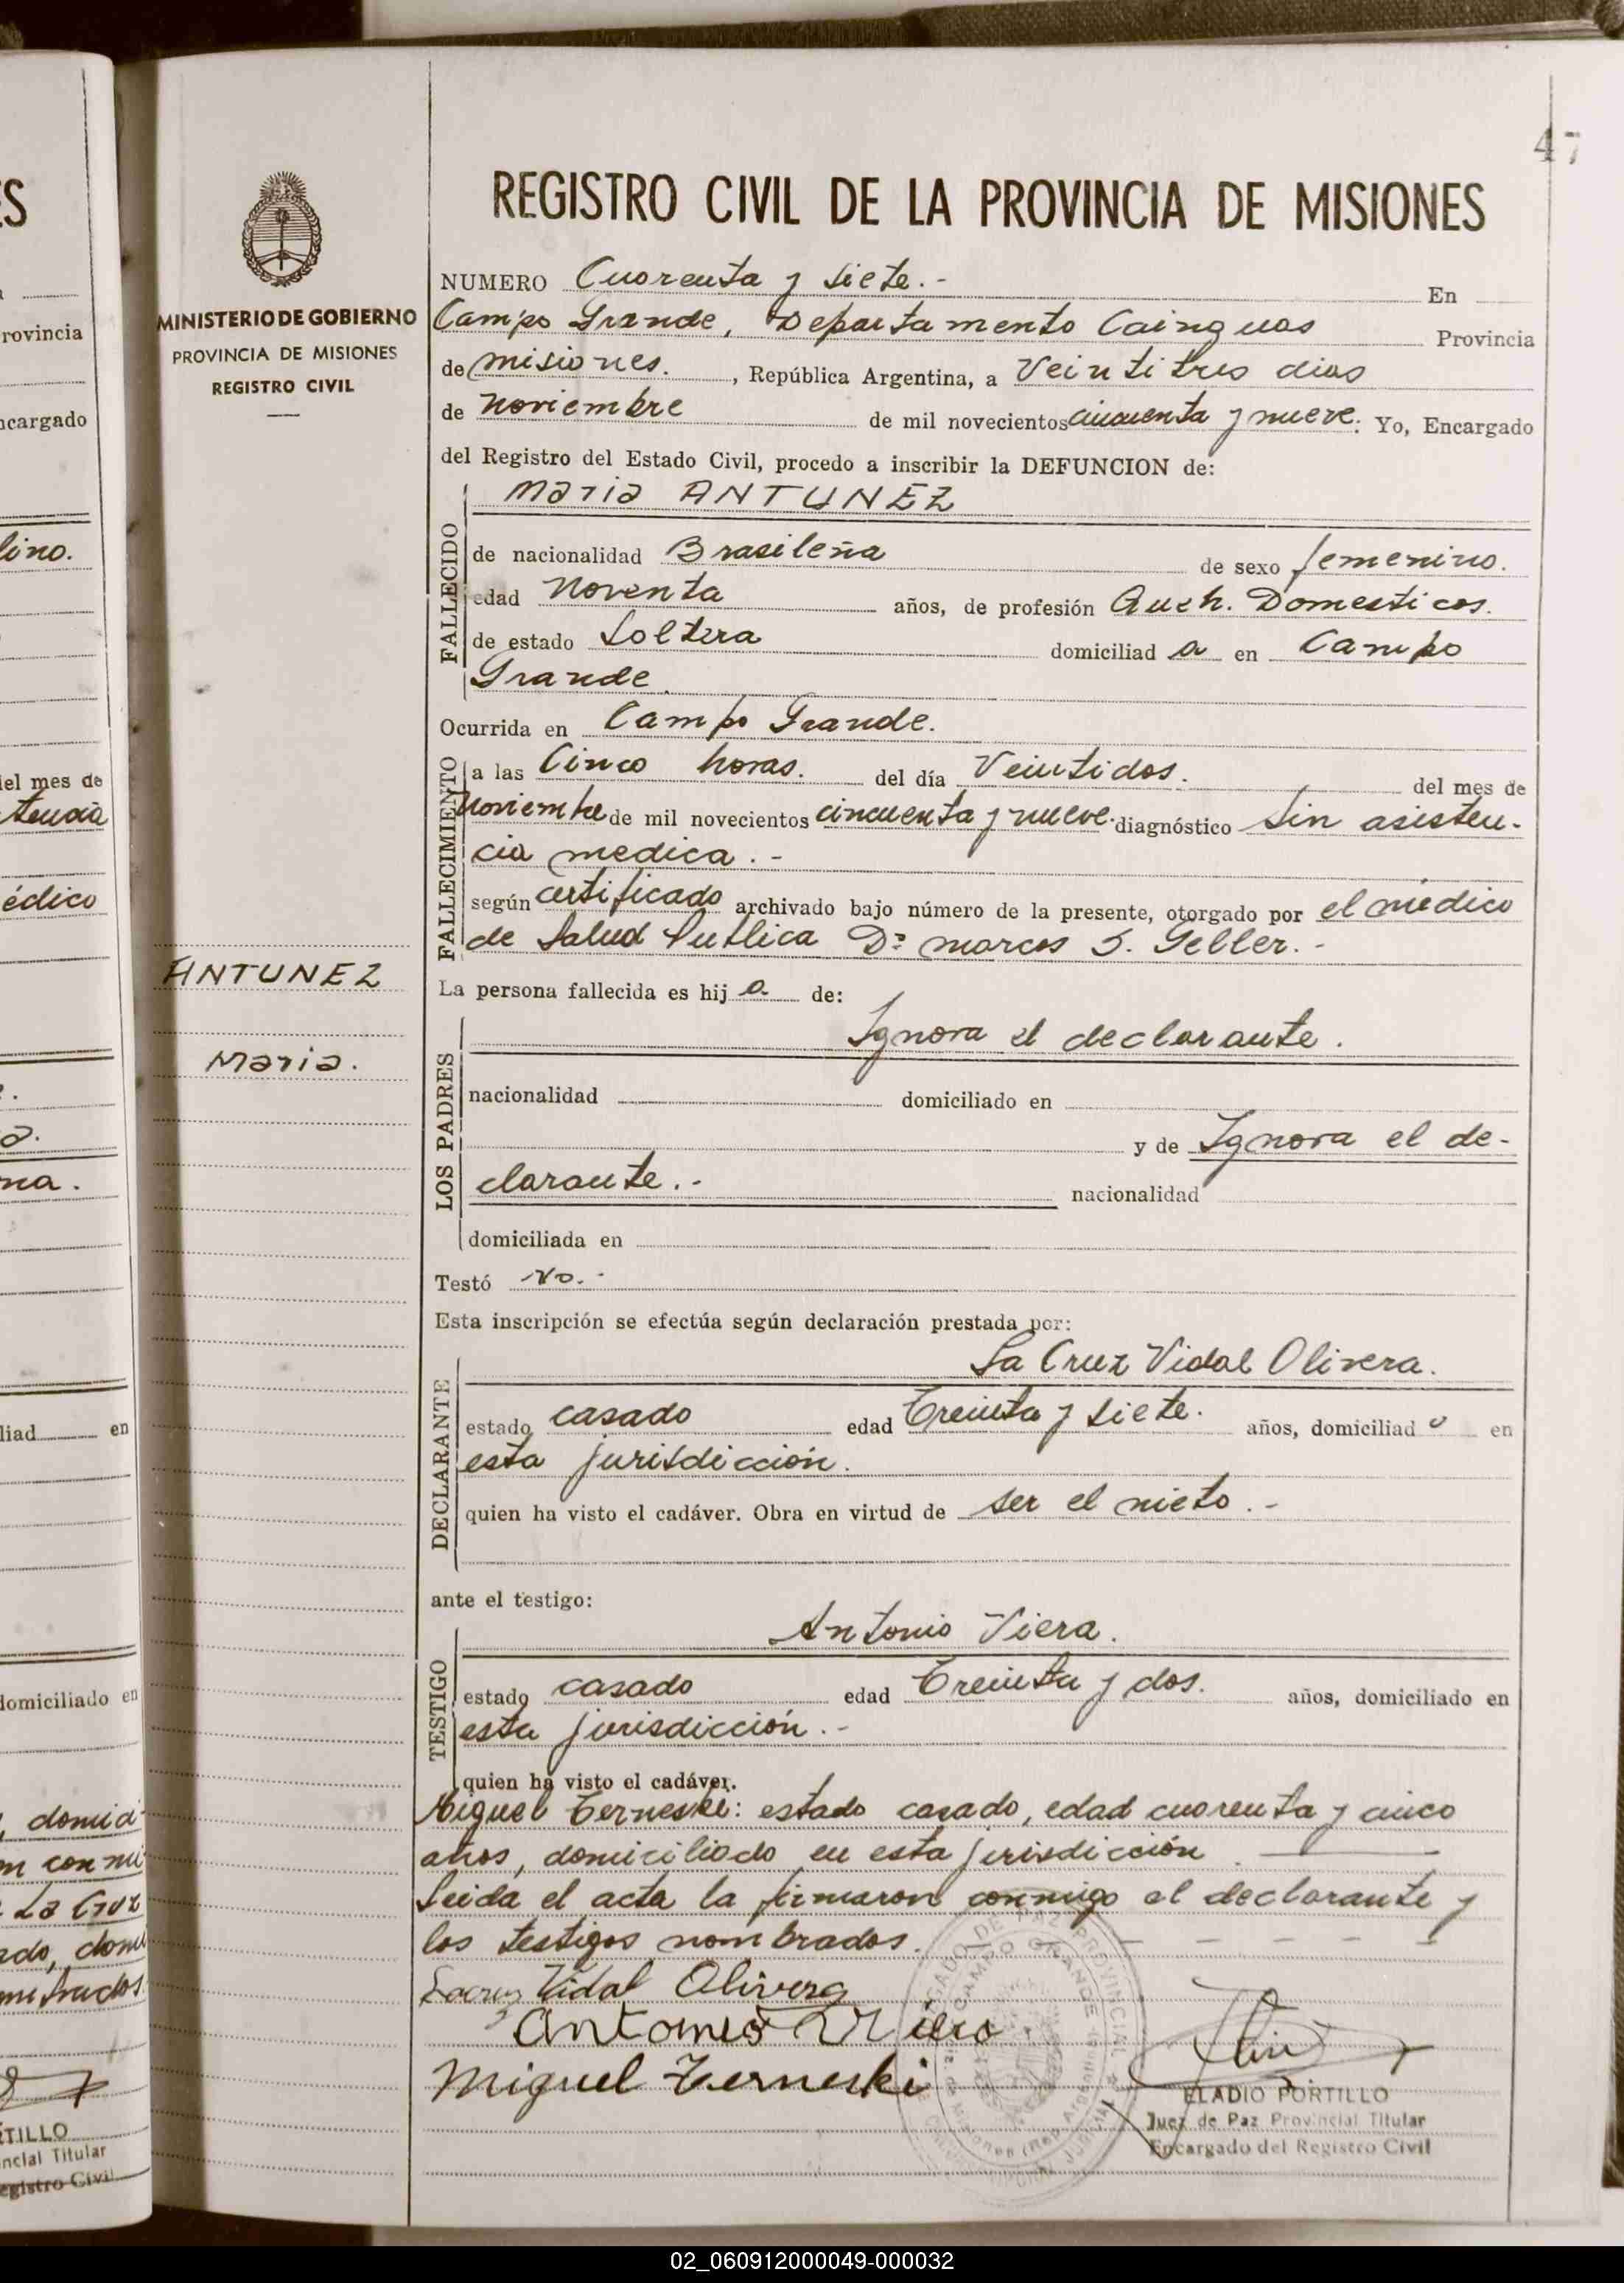 47
REGISTRO CIVIL DE LA PROVINCIA DE MISIONES
MINISTERIO DE GOBIERNO
PROVINCIA DE MISIONES
REGISTRO CIVIL
NUMERO Cuarenta y siete.- En
Campo Grande, Departamento Cainguas Provincia
de misiones. , República Argentina, a Veintitres dias
de noviembre de mil novecientos cincuenta y nueve. Yo, Encargado
del Registro del Estado Civil, procedo a inscribir la DEFUNCION de:
Maria ANTUNEZ
FALLECIDO
de nacionalidad Brasileña de sexo femenino.
edad Noventa años, de profesión Queh. Domesticos.
de estado Soltera domiciliad a en Campo
Grande
Ocurrida en Campo Grande.
FALLECIMIENTO
a las Cinco horas. del día Veintidos. del mes de
Noviembre de mil novecientos cincuenta y nueve. diagnóstico Sin asisten-
cia medica.-
según certificado archivado bajo número de la presente, otorgado por el médico
de Salud Publica Dr. marcos S. Geller.-
ANTUNEZ
Maria.
La persona fallecida es hij a de:
LOS PADRES
Ignora el declarante.
nacionalidad domiciliado en
y de Ignora el de-
clarante.-
nacionalidad
domiciliada en
Testó No.-
Esta inscripción se efectúa según declaración prestada por:
DECLARANTE
La Cruz Vidal Olivera.
estado casado edad Treinta y siete. años, domiciliad o en
esta jurisdicción.
quien ha visto el cadáver. Obra en virtud de ser el nieto.-
ante el testigo:
TESTIGO
Antonio Viera.
estado casado edad Treinta y dos. años, domiciliado en
esta jurisdicción.-
quien ha visto el cadáver.
Miguel Terneski: estado casado, edad cuarenta y cinco
años, domiciliado en esta jurisdicción.
Leida el acta la firmaron conmigo el declarante y
los testigos nombrados.
Lacruz Vidal Olivera
Antonio Viera
Miguel Terneski
ELADIO PORTILLO
Juez de Paz Provincial Titular
Encargado del Registro Civil
02_060912000049-000032